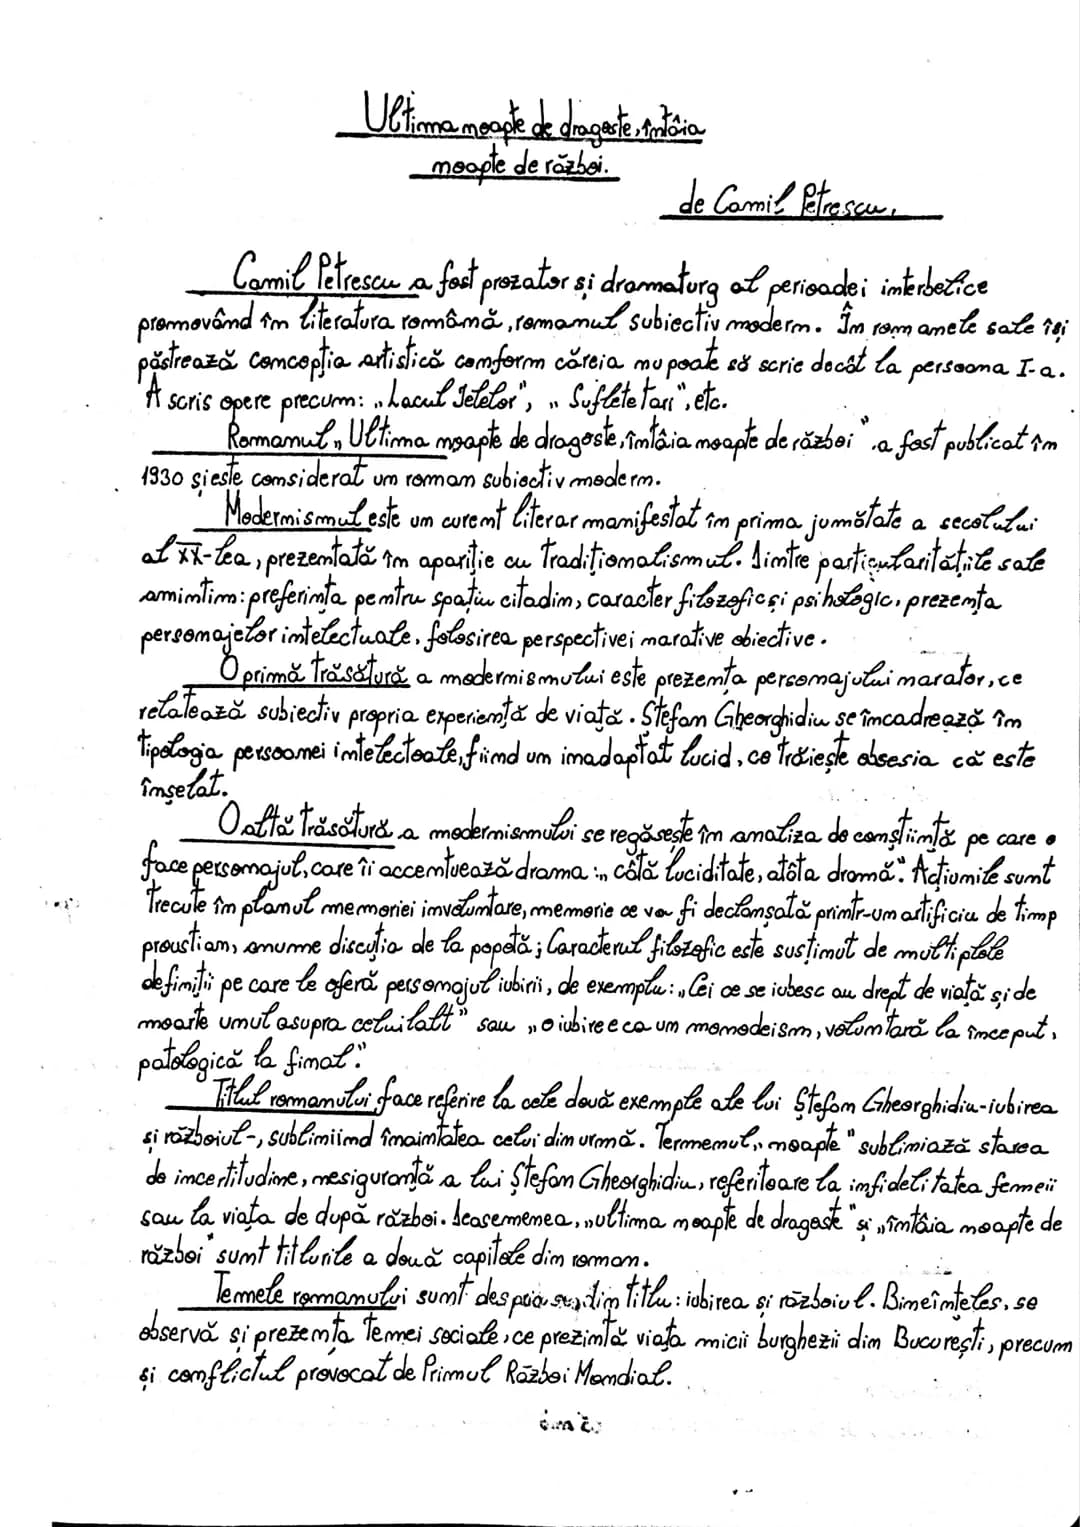 Ultima noapte de dragoste, întâia
noapte de război.
de Camil Petrescu.
Camil Petrescu a fost prozator și dramaturg al perioadei interbelice
promovând în literatura română, romanul subiectiv modern. În romanele sale își
păstrează concepția artistică conform căreia nu poate să scrie decât la persoana I-a.
A scris opere precum: „Lacul Ielelor", „Suflete Tari", etc.
Romanul „Ultima noapte de dragoste, întâia noapte de război" a fost publicat în
1930 și este considerat un roman subiectiv modern.
Modernismul este un curent literar manifestat în prima jumătate a secolului
al XX-lea, prezentată în apariție cu Tradiționalismul. Dintre particularitățile sale
amintim: preferința pentru spațiu citadin, caracter filozofic și psihologic, prezența
personajelor intelectuale, folosirea perspectivei narative obiective.
O primă trăsătură a modernismului este prezența personajului narator, ce
relatează subiectiv propria experiență de viață. Ștefan Gheorghidiu se încadrează în
tipologia persoanei intelectoale, fiind un inadaptat lucid, ce trăiește obsesia că este
înșelat.
O altă trăsătură a modernismului se regăsește în analiza de conștiință pe care o
face personajul, care îi accentuează drama: „câtă luciditate, atâta dramă". Acțiunile sunt
trecute în planul memoriei involuntare, memorie ce va fi declanșată printr-un artificiu de timp
proustian, anume discuția de la popotă; Caracterul filozofic este susținut de multiplele
definiții pe care le oferă personajul iubirii, de exemplu: „Cei ce se iubesc au drept de viață și de
moarte unul asupra celuilalt" sau „o iubire e ca un monodeism, voluntară la început,
patologică la final."
Titlul romanului face referire la cele două exemple ale lui Ștefan Gheorghidiu-iubirea
și războiul-, subliniind înaintatea celui din urmă. Termenul „noapte" subliniază starea
de incertitudine, nesiguranță a lui Ștefan Gheorghidiu, referitoare la infidelitatea femeii
sau la viața de după război. Deasemenea, „ultima noapte de dragoste" și „întâia noapte de
război" sunt titlurile a două capitole din roman.
Temele romanului sunt din titlu: iubirea și războiul. Bineînțeles, se
observă și prezența Temei sociale, ce prezintă viața micii burghezii din București, precum
și conflictul provocat de Primul Război Mondial.